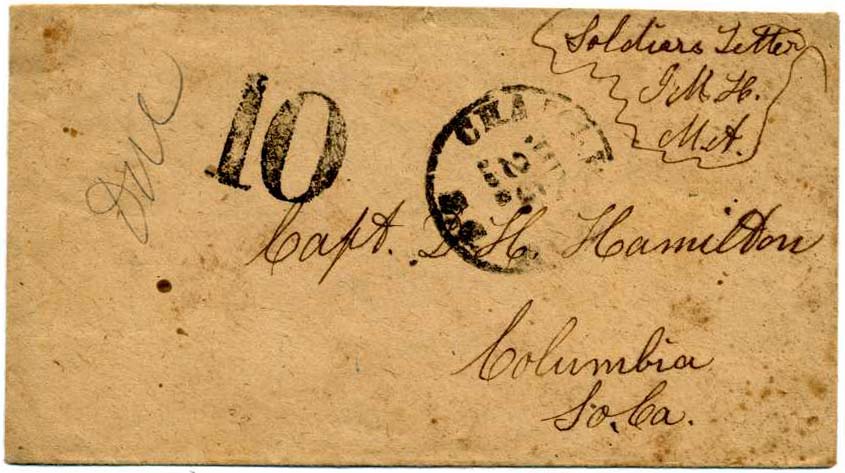 Soldiers Letter
J. M. H.
M. A.
Due
10
Capt. D. H. Hamilton
Columbia
So. Ca.